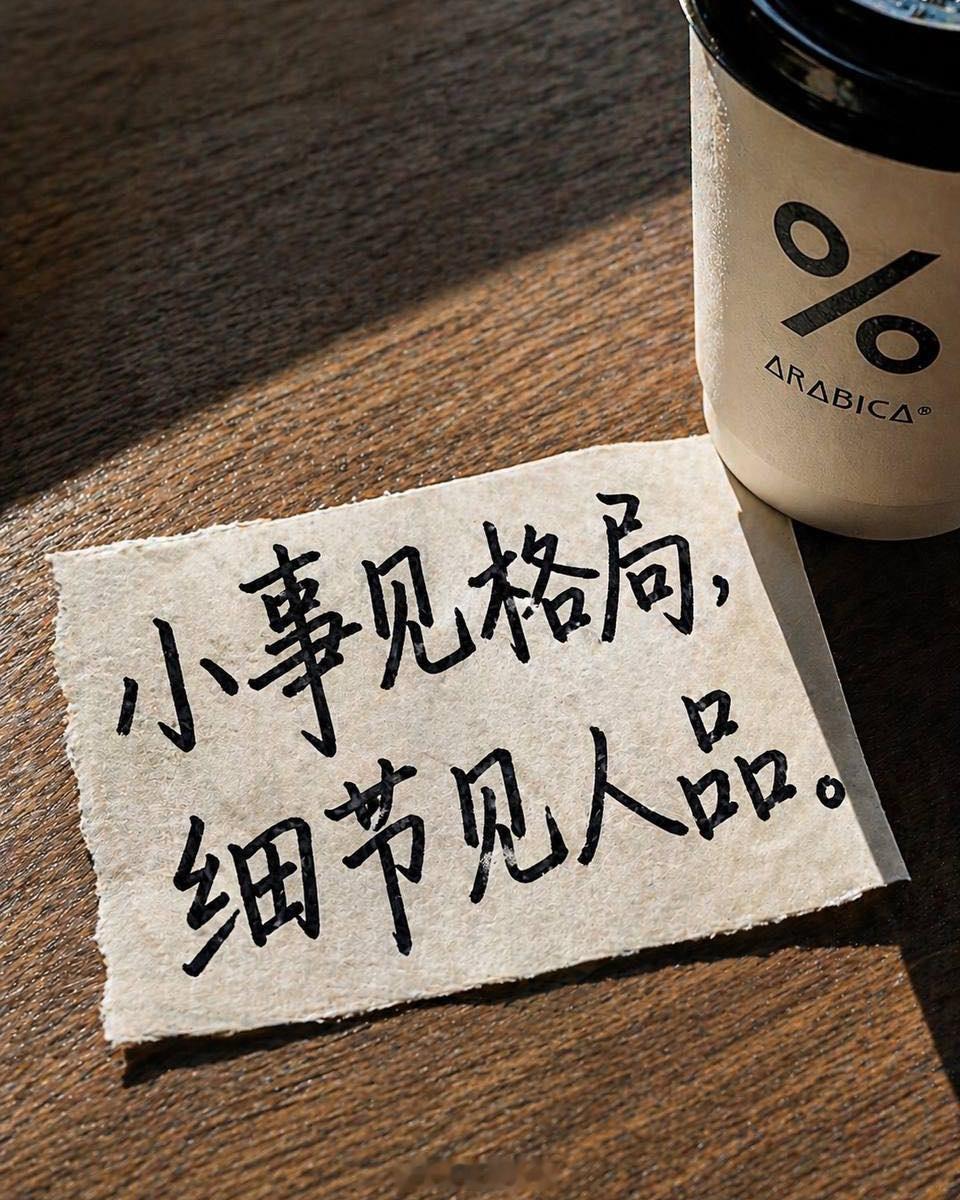 %
ARABICA®
小事见格局，
细节见人品。